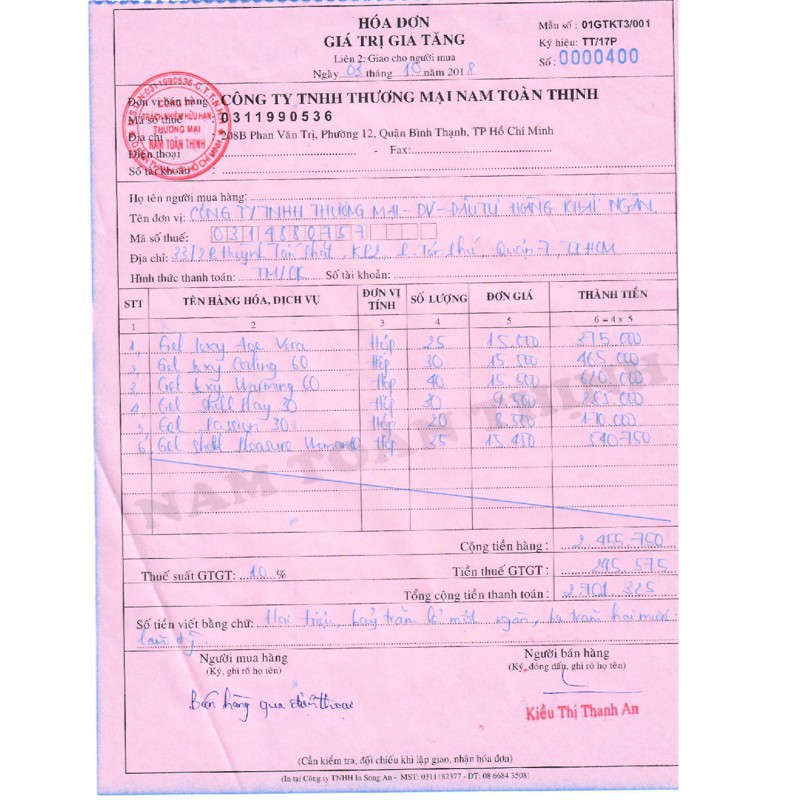 HÓA ĐƠN
GIÁ TRỊ GIA TĂNG
Liên 2: Giao cho người mua
Ngày 03 tháng 10 năm 2018
Mẫu số : 01GTKT3/001
Ký hiệu: TT/17P
Số : 0000400
Đơn vị bán hàng CÔNG TY TNHH THƯƠNG MẠI NAM TOÀN THỊNH
Mã số thuế 0311990536
Địa chỉ 208B Phan Văn Trị, Phường 12, Quận Bình Thạnh, TP Hồ Chí Minh
Điện thoại - Fax:
Số tài khoản
CÔNG TY
TRÁCH NHIỆM HỮU HẠN
THƯƠNG MẠI
NAM TOÀN THỊNH
Họ tên người mua hàng:
Tên đơn vị: CÔNG TY TNHH THƯƠNG MẠI - DV - ĐẦU TƯ HOÀNG KHẢI NGÂN
Mã số thuế: 0314880757
Địa chỉ: Huỳnh Tấn Phát, KP2, P. Tân Phú, Quận 7, TP.HCM
Hình thức thanh toán: TM/CK Số tài khoản:
STT TÊN HÀNG HÓA, DỊCH VỤ ĐƠN VỊ TÍNH SỐ LƯỢNG ĐƠN GIÁ THÀNH TIỀN
1 2 3 4 5 6 = 4 x 5
1, Gel Hộp 25 15.000 375.000
2, Gel 60 Hộp 30 15.500 465.000
3, Gel Warming 60 Hộp 40 15.500 620.000
4, Gel 30 Hộp 30 9.500 285.000
5, Gel Passion 30 Hộp 20 8.500 170.000
6, Gel Pleasure Hộp 35 15.450 540.750
NAM TOÀN THỊNH
Cộng tiền hàng : 2.455.750
Thuế suất GTGT: 10 % Tiền thuế GTGT : 245.575
Tổng cộng tiền thanh toán : 2.701.325
Số tiền viết bằng chữ: Hai triệu, bảy trăm lẻ một ngàn, ba trăm hai mươi
lăm đ
Người mua hàng
(Ký, ghi rõ họ tên)
Bán hàng qua điện thoại
Người bán hàng
(Ký, đóng dấu, ghi rõ họ tên)
Kiều Thị Thanh An
(Cần kiểm tra, đối chiếu khi lập giao, nhận hóa đơn)
(In tại Công ty TNHH In Song An - MST: 0311182377 - ĐT: 08 6684 3508)